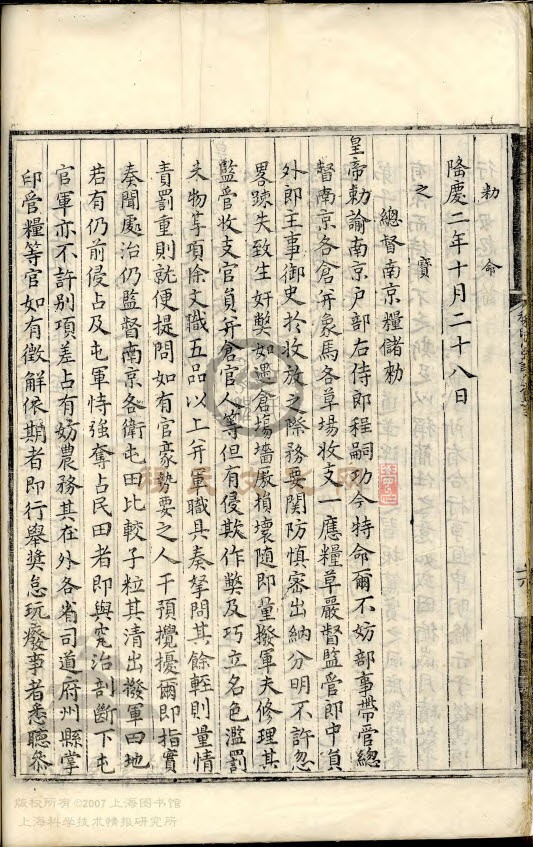 勑命
隆慶二年十月二十八日
之寶
總督南京糧儲勑
皇帝勑諭南京戶部右侍郎程嗣功今特命爾不妨部事帶管總
督南京各倉并象馬各草場收支一應糧草嚴督監管郎中員
外郎主事御史於收放之際務要関防慎宻出納分明不許忽
畧踈失致生奸獘如遇倉場墻廒損壞随即量撥軍夫修理其
監管收支官員并倉官人等但有侵欺作獘及巧立名色濫罰
夫物等項除文職五品以上并軍職具奏拏問其餘輕則量情
責罰重則就便提問如有官豪勢要之人干預攪擾爾即指實
奏聞處治仍監督南京各衛屯田比較子粒其清出撥軍田地
若有仍前侵占及屯軍恃強奪占民田者即與究治剖斷下屯
官軍亦不許别項差占有妨農務其在外各省司道府州縣掌
印管糧等官如有徵解依期者即行舉奬怠玩癈事者悉聽叅
版权所有©2007上海图书馆
上海科学技术情报研究所